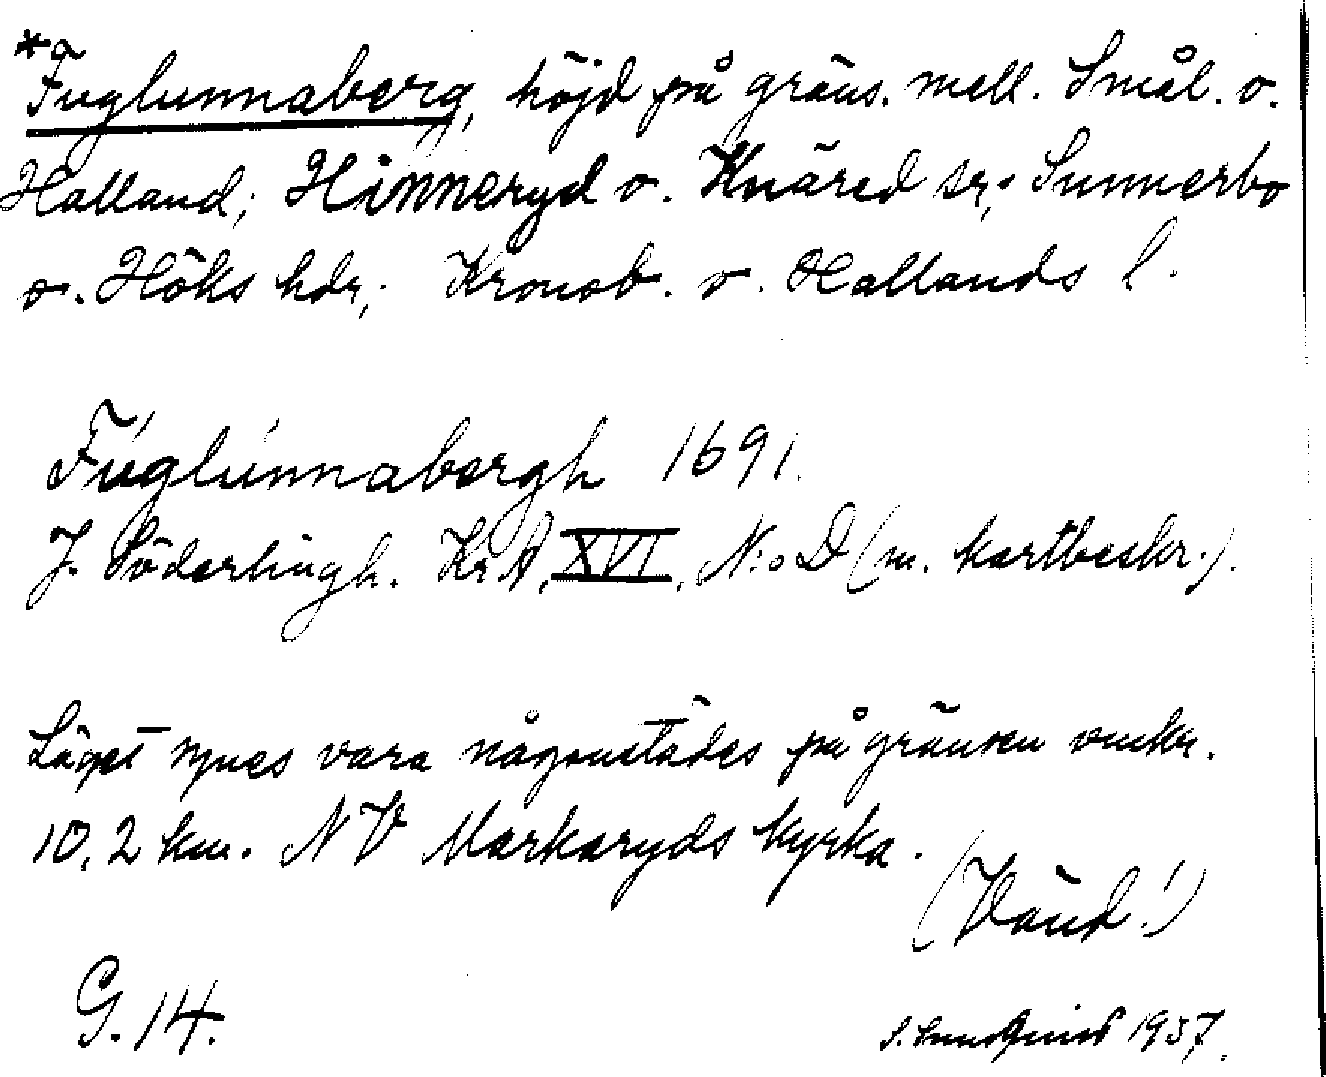 *Fuglunnaberg, höjd på gräns. mell. Smål. o.
Halland; Hinneryd o. Knäred sr; Sunnerbo
o. Höks hdr; Kronob. o. Hallands l.
Fúglúnnabergh 1691.
J. Söderlingh. KrA, XVI, N:o D (m. kartbeskr.).
Läget synes vara någonstädes på gränsen omkr.
10,2 km. NV Markaryds kyrka.
(Vänd!)
G.14.
S. Sundqvist 1937.